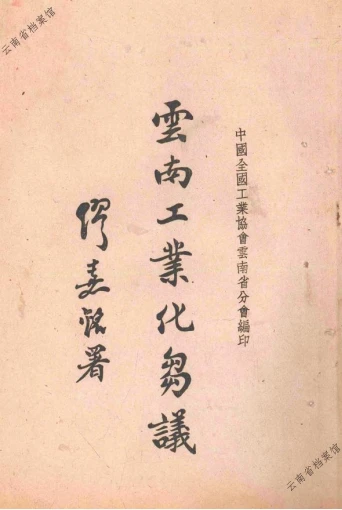 中國全國工業協會雲南省分會編印
雲南工業化芻議
繆嘉銘署
云南省档案馆
云南省档案馆